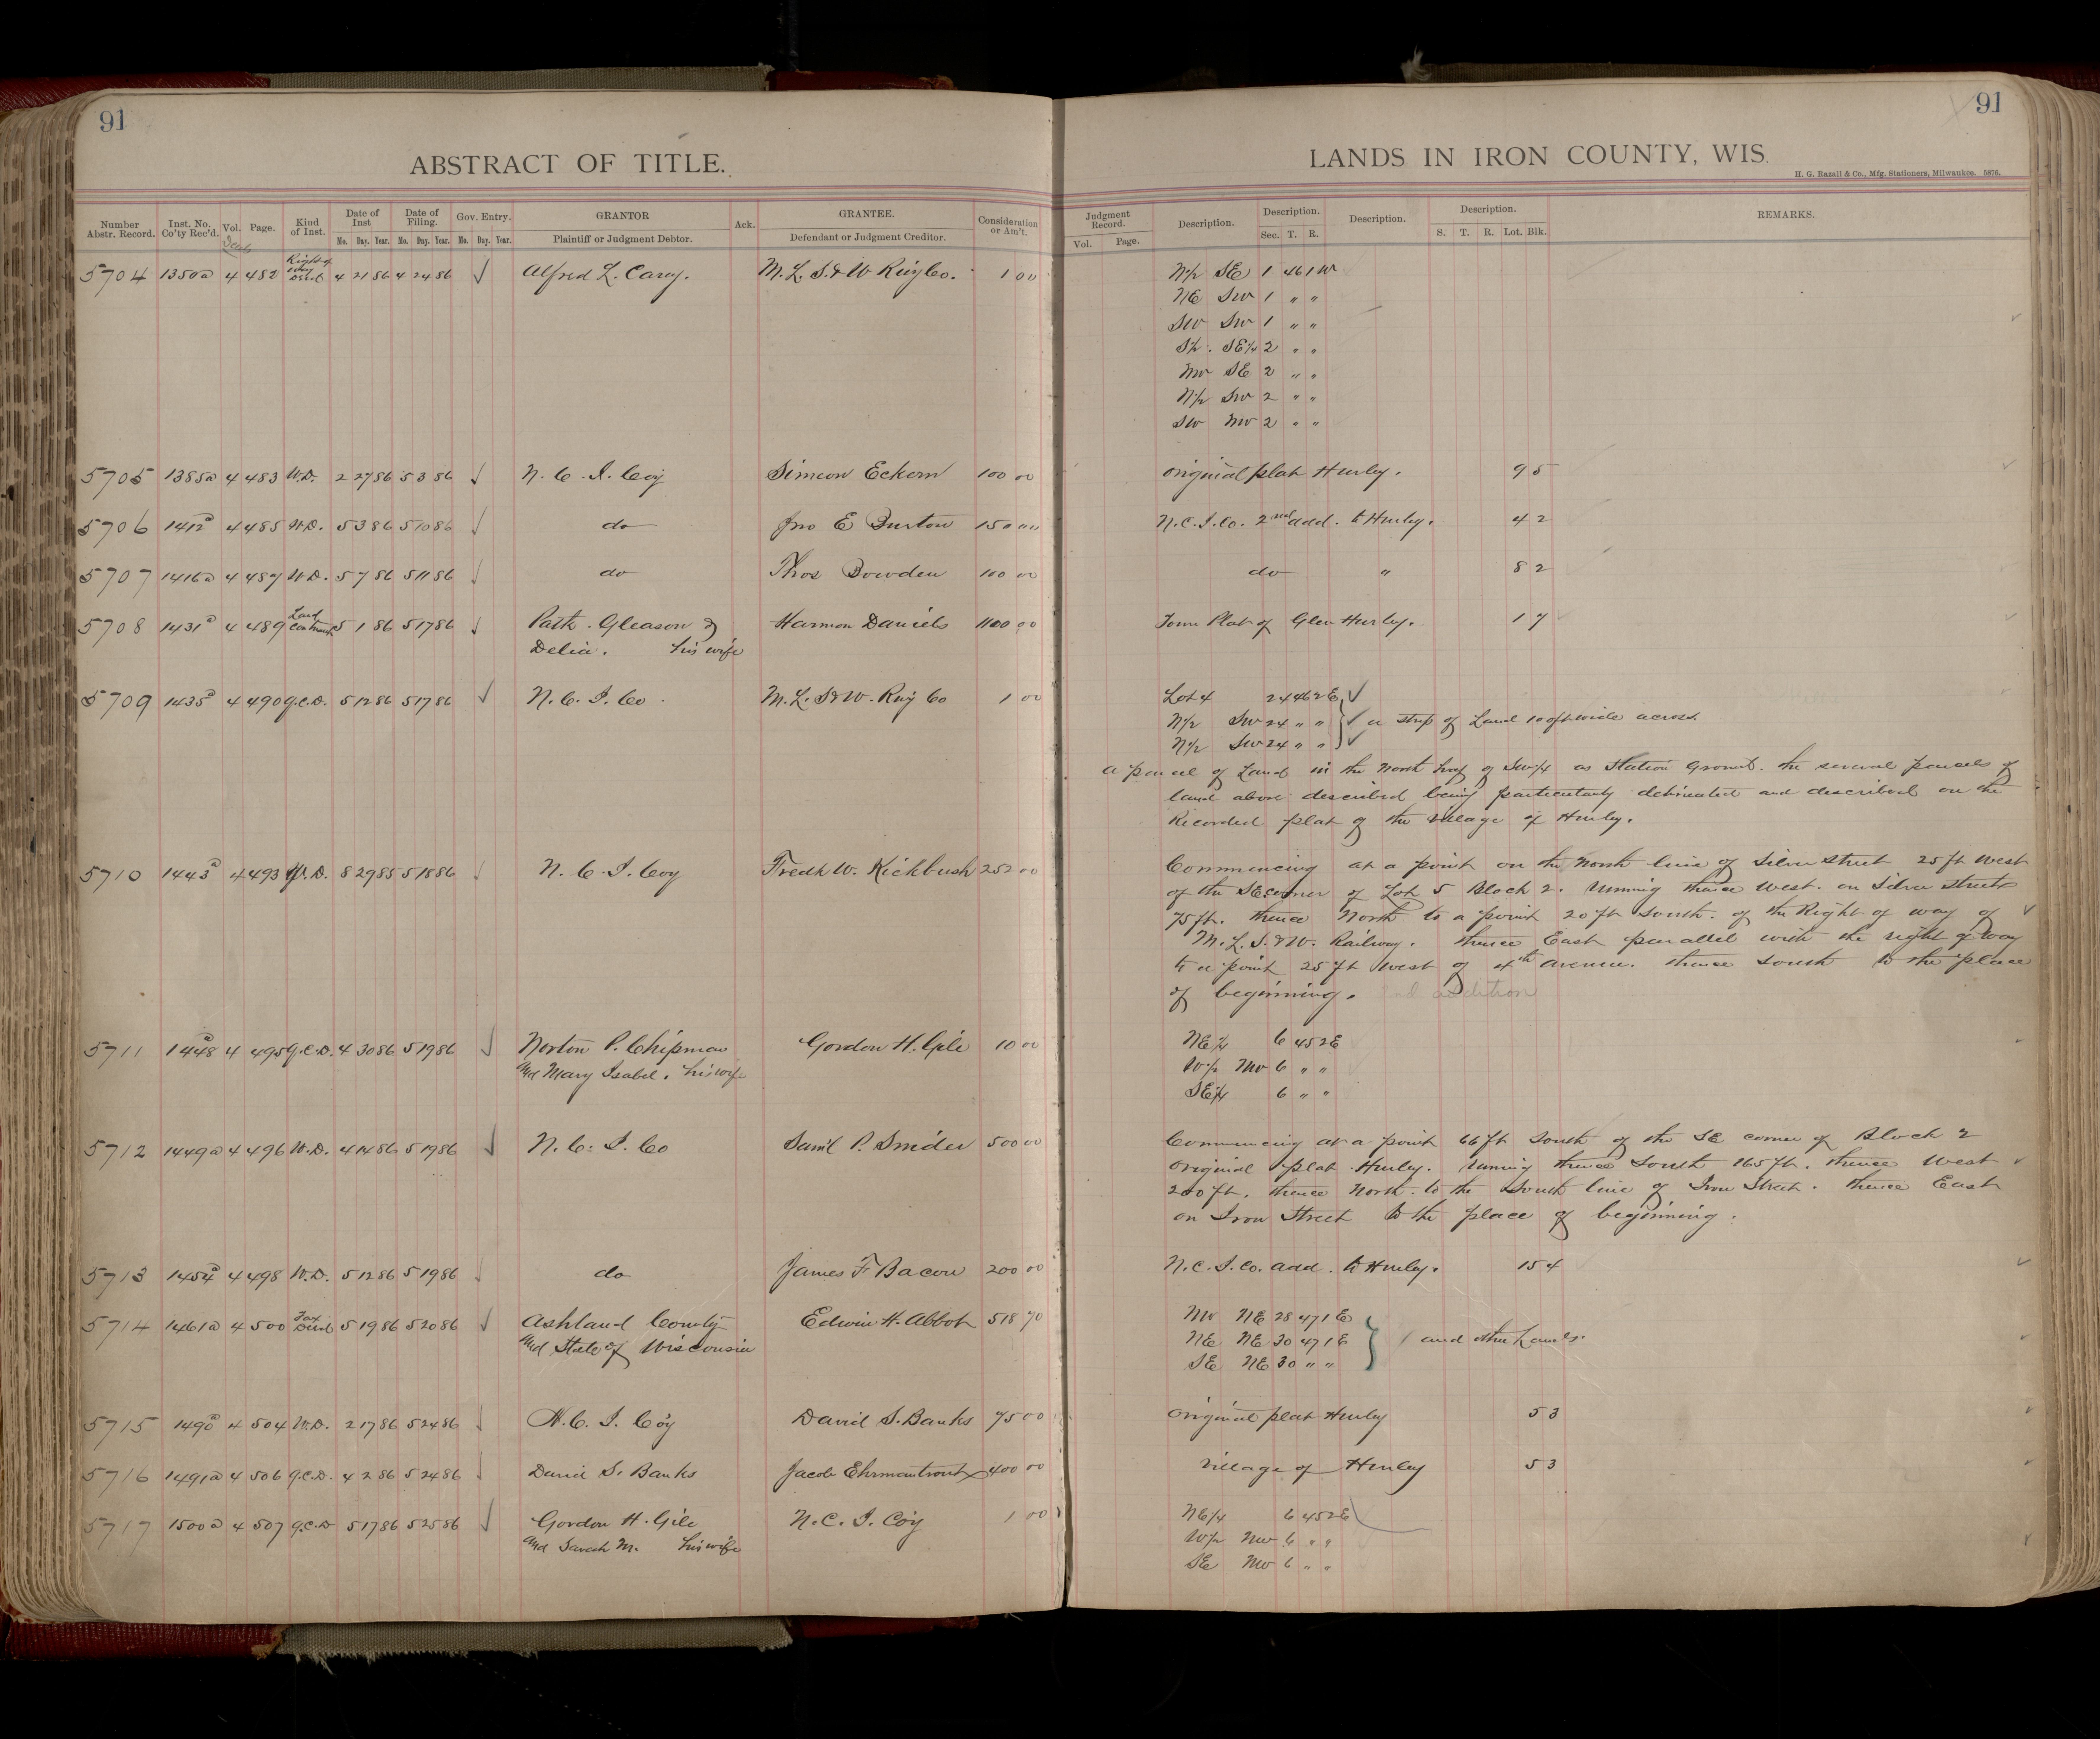 91
ABSTRACT OF TITLE.
Number Abstr. Record. Inst. No. Co'ty Rec'd. Vol. Page. Kind of Inst. Date of Inst Mo. Day. Year. Date of Filing. Mo. Day. Year. Gov. Entry. Mo. Day. Year. GRANTOR Plaintiff or Judgment Debtor. Ack. GRANTEE. Defendant or Judgment Creditor. Consideration or Am't.
Deeds
5704 1350a 4 482 Right of way Deed 4 21 86 4 24 86 Alfred L. Cary. M. L. S. & W Ry Co. 1 00
5705 1385a 4 483 W.D. 2 27 86 5 3 86 N. C. I. Coy Simeon Eckern 100 00
5706 1412a 4 485 W.D. 5 3 86 5 10 86 do Jno E Burton 150 00
5707 1416a 4 487 W.D. 5 7 86 5 11 86 do Thos Bowden 100 00
5708 1431a 4 489 Land Contract 5 1 86 5 17 86 Patk. Gleason & Harmon Daniels 1100 00
Delia. his wife
5709 1435a 4 490 Q.C.D. 5 12 86 5 17 86 N. C. I. Co. M. L. S & W. Ry Co 1 00
5710 1443a 4 493 W.D. 8 29 85 5 18 86 N. C. I. Coy Fredk W. Kickbush 252 00
5711 1448a 4 495 Q.C.D. 4 30 86 5 19 86 Norton P. Chipman Gordon H. Gile 10 00
and Mary Isabel. his wife
5712 1449a 4 496 W.D. 4 14 86 5 19 86 N. C. I. Co Saml P. Snider 500 00
5713 1454a 4 498 W.D. 5 12 86 5 19 86 do James F Bacon 200 00
5714 1461a 4 500 Tax Deed 5 19 86 5 20 86 Ashland County Edwin H. Abbot 518 70
and State of Wisconsin
5715 1490a 4 504 W.D. 2 17 86 5 24 86 N. C. I. Coy David S. Banks 75 00
5716 1491a 4 506 Q.C.D. 4 2 86 5 24 86 David S. Banks Jacob Ehrmantrout 400 00
5717 1500a 4 507 Q.C.D 5 17 86 5 25 86 Gordon H. Gile N. C. I. Coy 1 00
and Sarah M. his wife
91
LANDS IN IRON COUNTY, WIS.
H. G. Razall & Co., Mfg. Stationers, Milwaukee. 5876.
Judgment Record. Vol. Page. Description. Description. Sec. T. R. Description. Description. S. T. R. Lot. Blk. REMARKS.
N½ SE 1 46 1 W
NE SW 1 " "
SW SW 1 " "
S½. SE¼ 2 " "
NW SE 2 " "
N½ SW 2 " "
SW NW 2 " "
Original plat Hurley. 9 5
N.C.I.Co. 2nd add. to Hurley. 4 2
do " 8 2
Town Plat of Glen Hurley. 1 7
Lot 4 24 46 2 E
N½ SW 24 " " a strip of Land 100ft wide across
N½ SW 24 " "
a parcel of Land in the North half of SW¼ as Station Ground. the several parcels of
land above described being particularly delineated and described on the
Recorded plat of the village of Hurley.
Commencing at a point on the North line of Silver Street 25 ft West
of the SE corner of Lot 5 Block 2. running thence West. on Silver Street
75 ft. thence North to a point 20 ft South. of the Right of way of
M. L. S. & W. Railway. thence East parallel with the right of way
to a point 25 ft West of 4th avenue. thence South to the place
of beginning. addition
NE¼ 6 45 2 E
W½ NW 6 " "
SE¼ 6 " "
Commencing at a point 66 ft South of the SE corner of Block 2
Original plat Hurley. running thence South 165 ft. thence West
200 ft. thence North. to the South line of Iron Street. thence East
on Iron Street to the place of beginning.
N.C.I.Co. add. to Hurley. 15 4
NW NE 28 47 1 E
NE NE 30 47 1 E and other Lands.
SE NE 30 " "
Original plat Hurley 5 3
Village of Hurley 5 3
NE¼ 6 45 2 E
W½ NW 6 " "
SE NW 6 " "